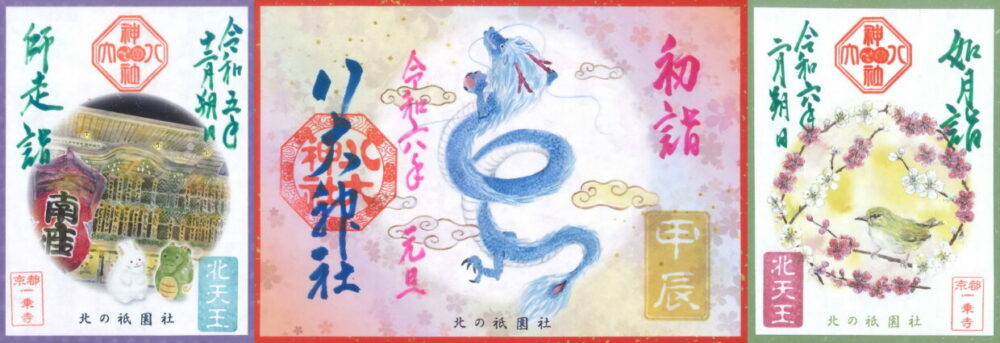 令和五年
十二月朔日
師走詣
南座
北天王
京都
一乗寺
北の祇園社
初詣
八大神社
令和六年
元旦
甲辰
北の祇園社
如月詣
令和六年
二月朔日
北天王
京都
一乗寺
北の祇園社